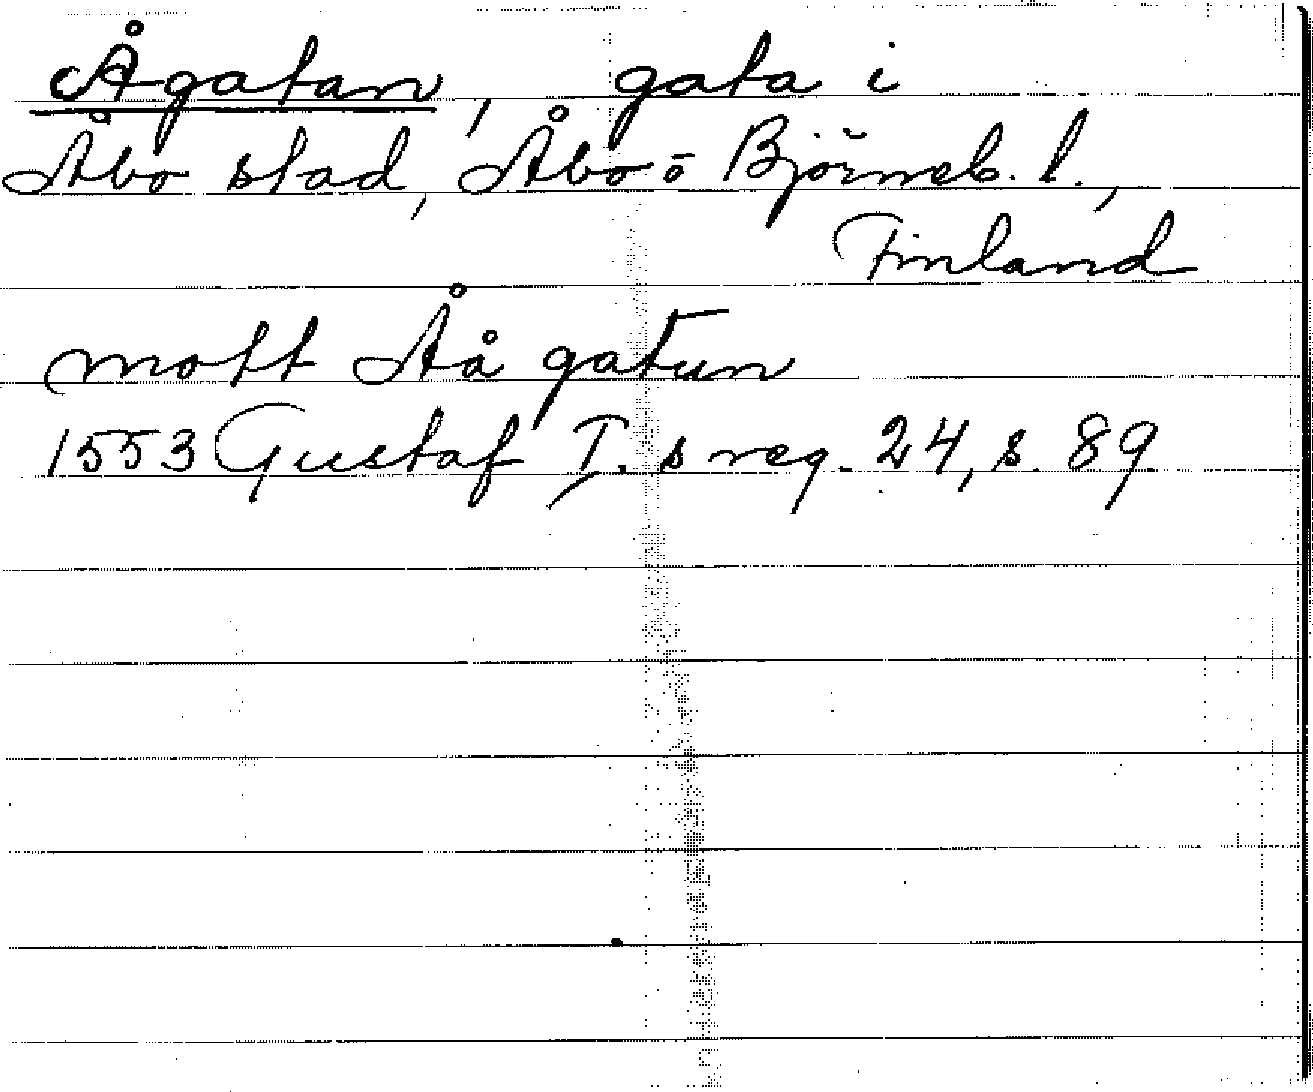 Ågatan, gata i
Åbo stad, Åbo o Björneb. l.,
Finland
mott Åå gatun
1553 Gustaf I. s reg. 24, s. 89